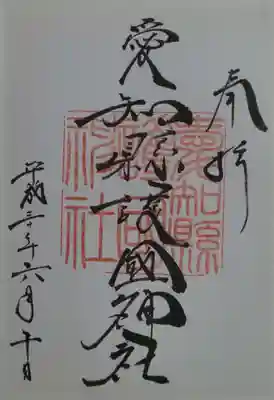 奉拝
愛知縣護國神社
平成三十年六月十日
愛知縣
護國
神社